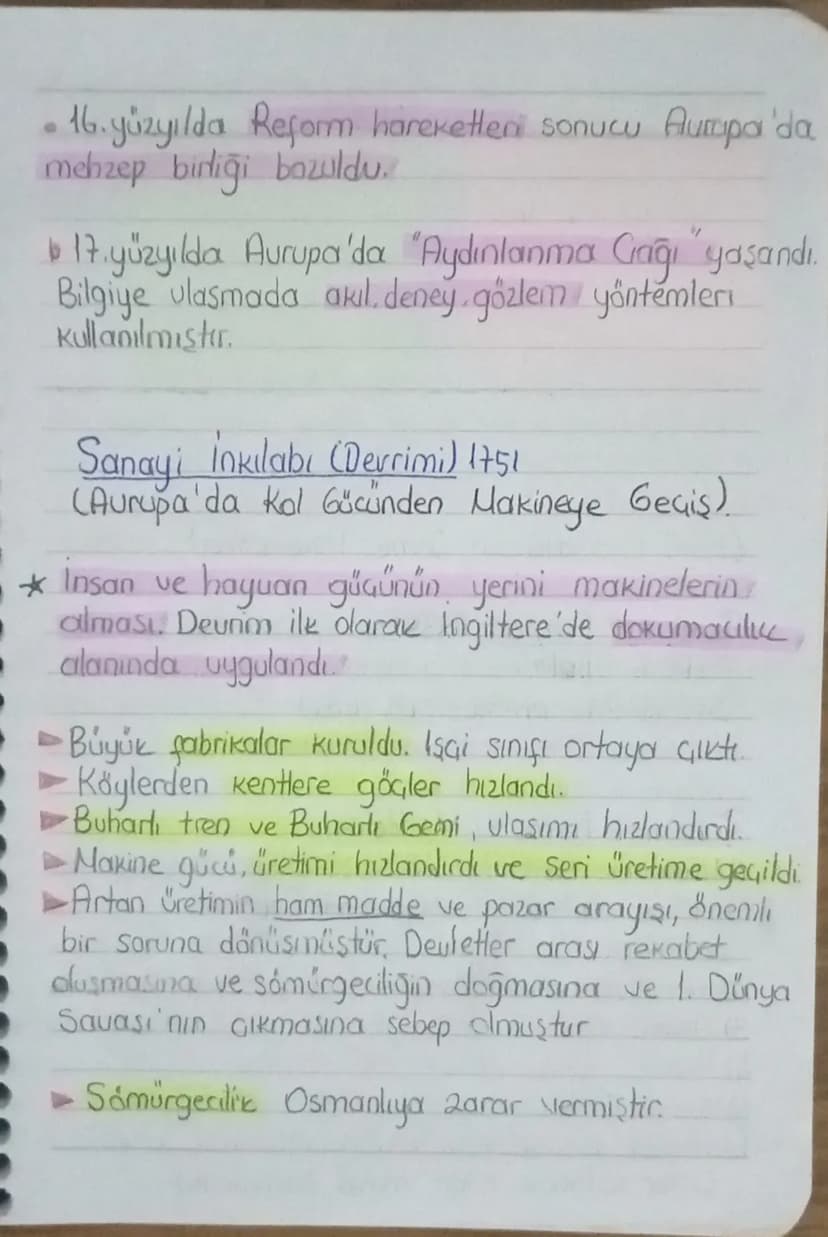 • 16.yüzyılda Reform hareketleri sonucu Avrupa'da
mehzep birliği bozuldu.
17.yüzyılda Avrupa'da "Aydınlanma Çağı" yaşandı.
Bilgiye ulaşmada akıl.deney.gözlem yöntemleri
kullanılmıştır.
Sanayi İnkılabı (Devrimi) 1751
(Avrupa'da Kol Gücünden Makineye Geçiş).
★ İnsan ve hayvan gücünün yerini makinelerin
alması. Devrim ilk olarak İngiltere'de dokumacılık
alanında uygulandı.
► Büyük fabrikalar kuruldu. İşçi sınıfı ortaya çıktı.
► Köylerden kentlere göçler hızlandı.
► Buharlı tren ve Buharlı Gemi, ulaşımı hızlandırdı.
► Makine gücü, üretimi hızlandırdı ve seri üretime geçildi.
► Artan üretimin ham madde ve pazar arayışı, önemli
bir soruna dönüşmüştür. Devletler arası rekabet
oluşmasına ve sömürgeciliğin doğmasına ve 1. Dünya
Savaşı'nın çıkmasına sebep olmuştur
► Sömürgecilik Osmanlıya zarar vermiştir.